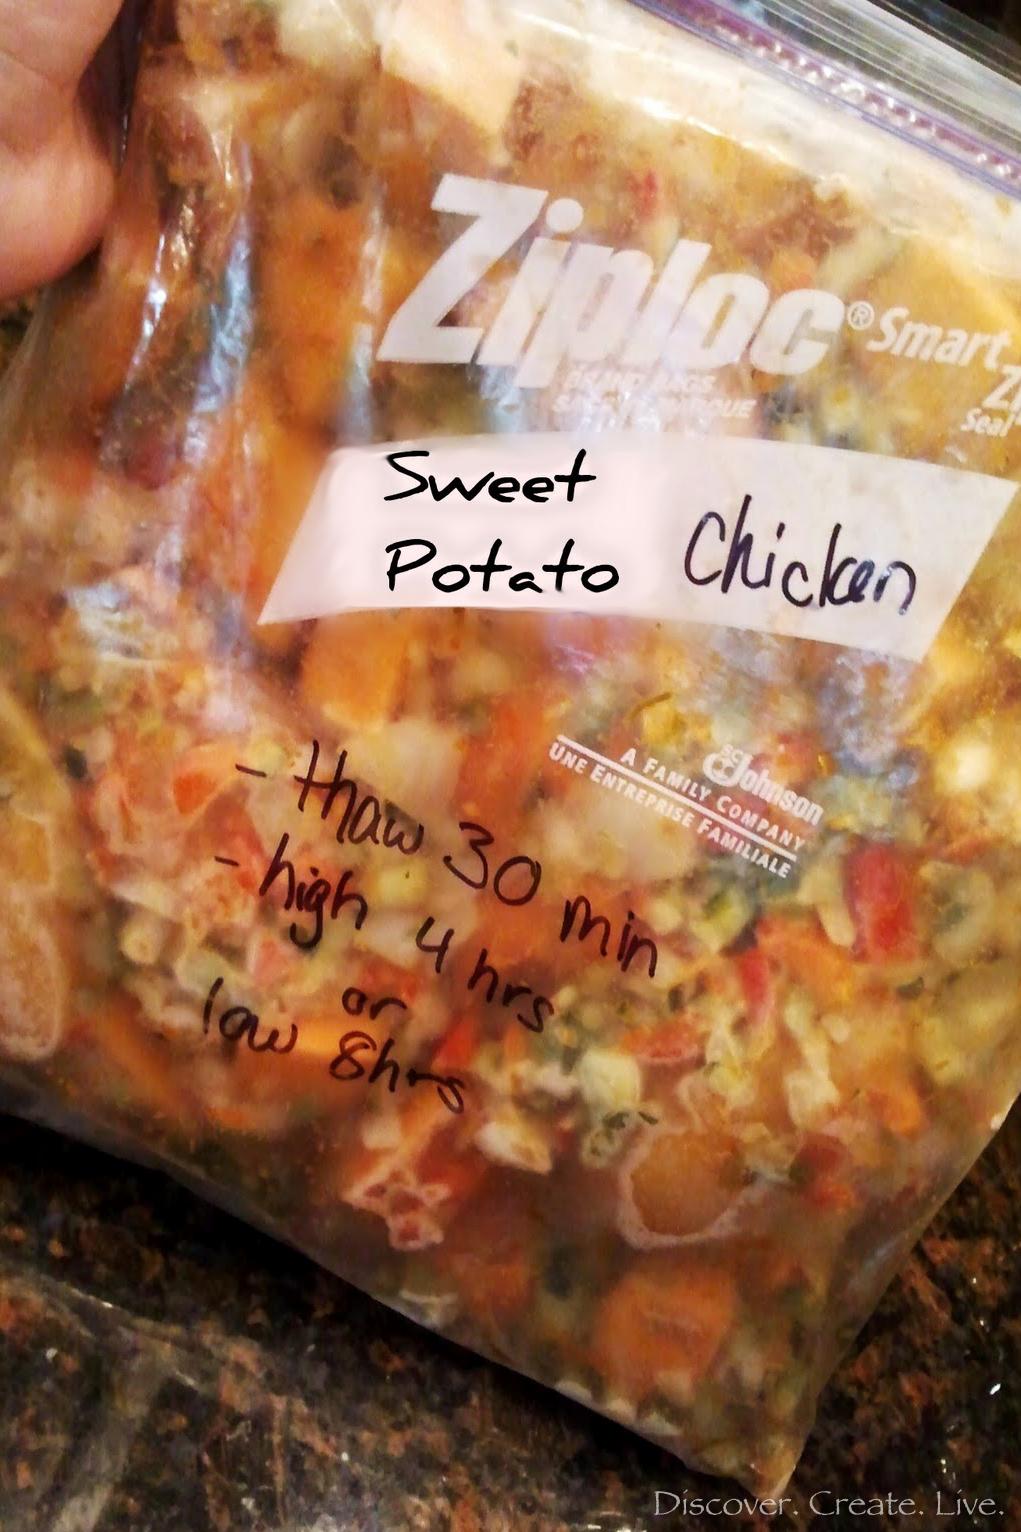 Ziploc® Smart
Zi
Seal
Sweet
Potato Chicken
SC Johnson
A FAMILY COMPANY
UNE ENTREPRISE FAMILIALE
- thaw 30 min
- high 4 hrs
or
low 8hrs
Discover. Create. Live.